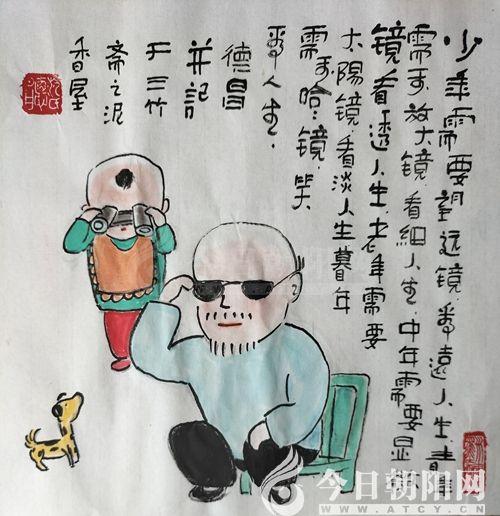 少年需要望远镜,看远人生,青年
需要放大镜看细人生,中年需要显微
镜看透人生,老年需要
太阳镜,看淡人生暮年
需要哈:镜,笑
看人生,
德昌
并记
于三竹
斋之泥
香屋
今日朝阳网
WWW.ATCY.CN